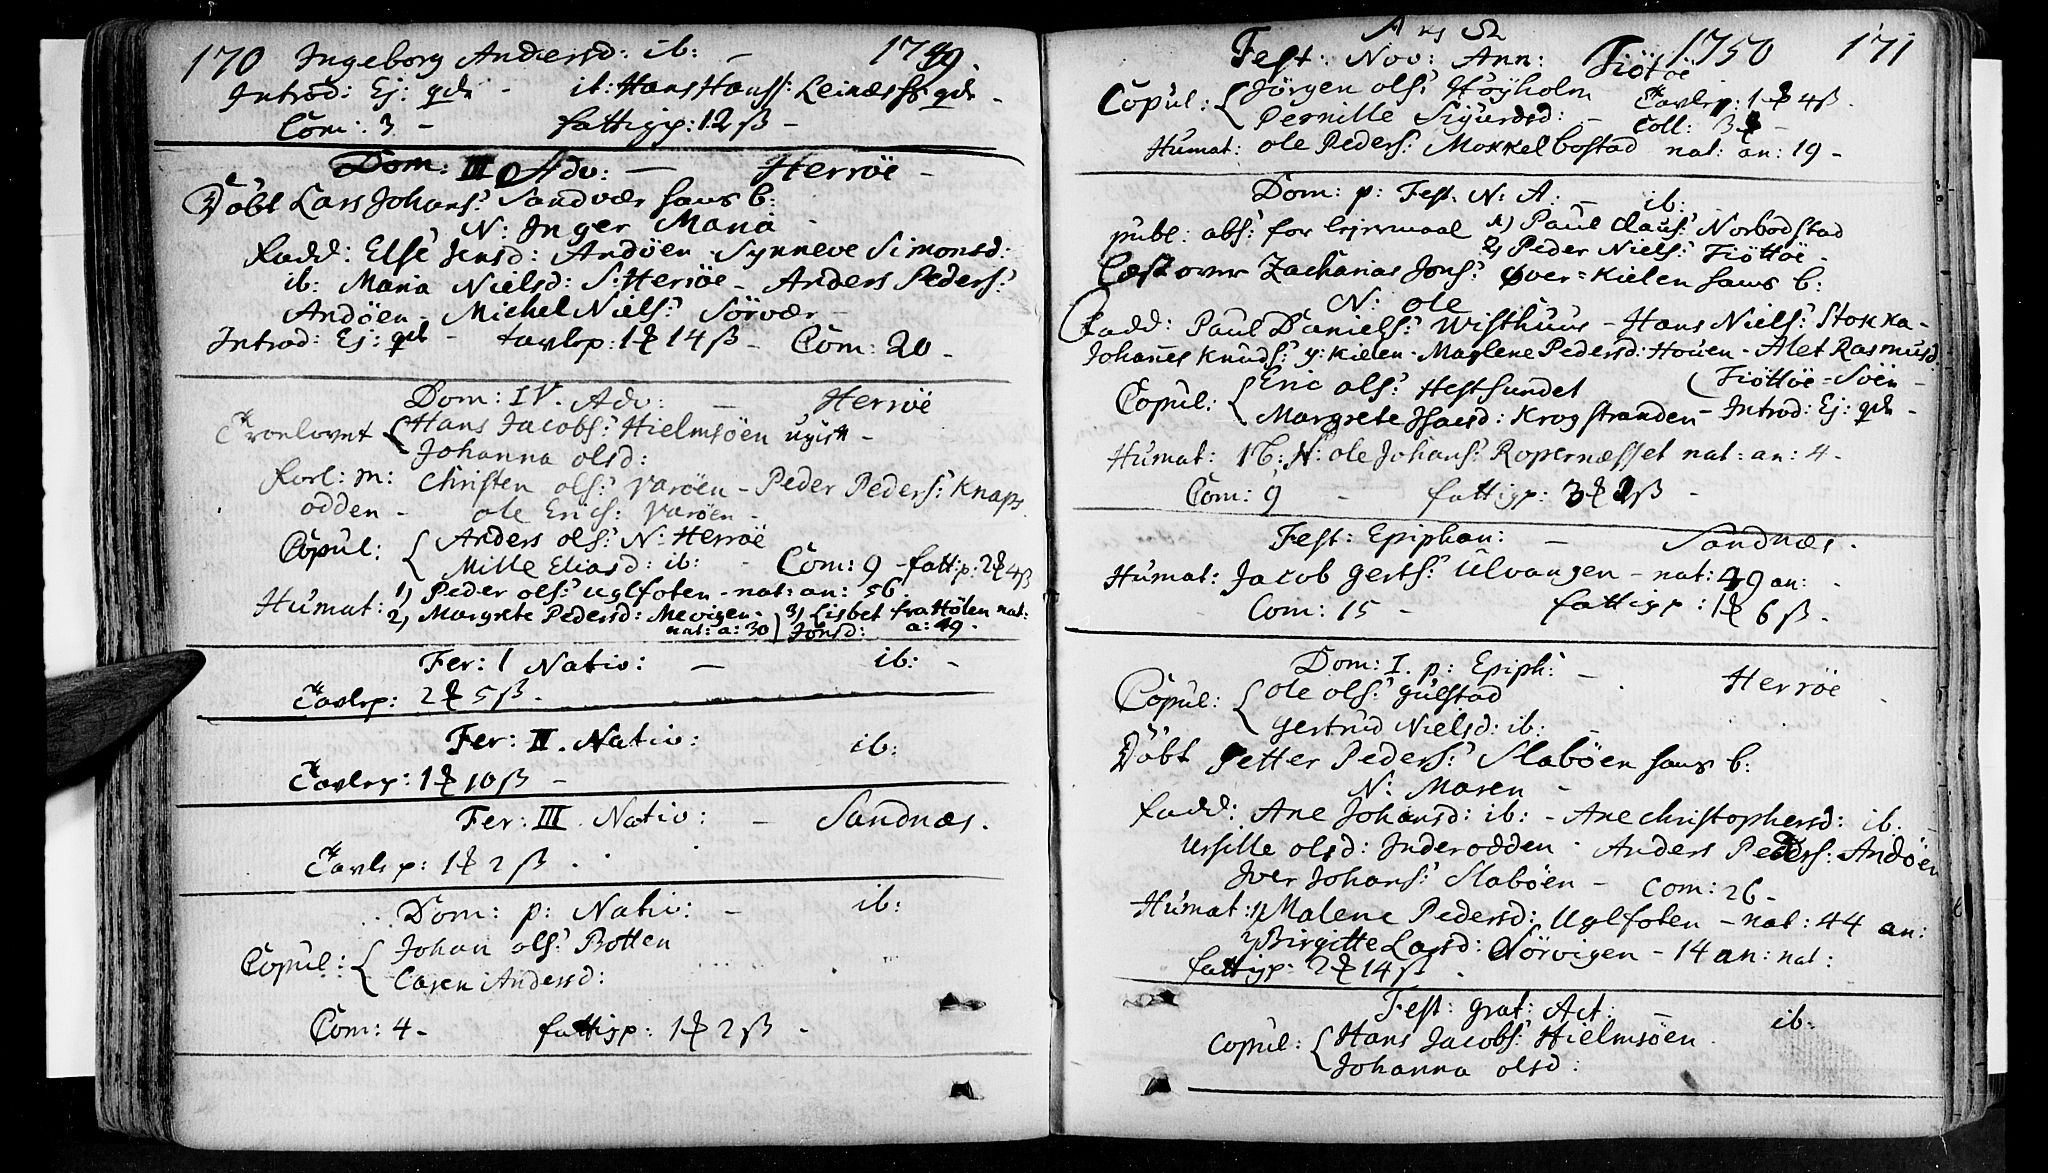 170 Ingeborg Andersd: ib: — 1749.
Introd: Ej: qdr - ib: Hans Hanss: Leinæs hs qdr -
Com: 3 - fattigp: 12 ß -
Dom: III Adv: — Herröe -
Döbt Lars Johans: Sandvær hans b:
N: Inger Maria -
Fadd: Else Jensd: Andöen - Synneve Simonsd:
ib: Maria Nielsd: S: Herröe - Anders Peders:
Andöen - Michel Niels: Sörvær -
Introd: Ej: qdr - tavlep: 1 14 ß - Com: 20 -
Dom: IV. Adv: — Herröe
Troelovet { Hans Jacobs: Hielmsöen
Johanna olsd:
Forl: m: Christen ols: Varöen - Peder Peders: Knaps
odden - ole Erics: Varöen -
Copul: { Anders ols: N: Herröe
Mille Eliasd: ib: - Com: 9 - fattip: 2 4 ß
Humat: 1) Peder ols: Uglfoten - nat: an: 56.
2) Margrete Pedersd: Mevigen - 3) Lisbet fra Hölen nat:
nat: a: 30 Jonsd: a: 49.
Fer: I Nativ: — ib: -
Tavlep: 2 5 ß -
Fer: II. Nativ: ib:
Tavlep: 1 10 ß -
Fer: III Nativ: — Sandnæs.
Tavlep: 1 2 ß .
Dom: p: Nativ: - ib:
Copul: { Johan ols: Botten
Caren Andersd:
Com: 4 - fattigp: 1 2 ß -
Fest: Nov: Ann: Tiötöe 1750 171
Copul: { Jörgen ols: Höyholm Tavlep: 1 4 ß.
Pernille Sigurdsd: - Coll: 3 -
Humat: ole Peders: Mokkelbostad nat: an: 19 -
Dom: p: Fest. N: A: - ib:
publ: abs: for lejermaal 1) Paul Claus: Norbodstad
2) Peder Niels: Tiöttöe -
Læst over Zacharias Jons: over=kielen hans b:
N: ole
Fadd: Paul Daniels: Wisthuus - Hans Niels: Stokka -
Johannes Knuds: y: kielen - Maglene Pedersd: Houen - Alet Rasmusd:
Copul: { Eric ols: Hestsundet (Tiöttöe=Söen -
Margrete Isacsd: Krogstranden - Introd: Ej: qdr -
Humat: 1 b: N: ole Johans: Ropernæsset nat: an: 4 -
Com: 9 - fattigp: 3 2 ß -
Fest: Epiphan: — Sandnæs.
Humat: Jacob Gerts: Ulvangen - nat: 49 an: -
Com: 15 - fattigp: 1 6 ß -
Dom: I. p: Epiph: - Herröe
Copul: { ole ols: Gulstad
Gertrud Nielsd: ib: -
Döbt Petter Peders: Slaböen hans b:
N: Maren -
Fadd: Ane Johansd: ib: - Ane Christophersd: ib: -
Ursille olsd: Inderodden - Anders Peders: Andöen
Iver Johans: Slaböen - Com: 26 -
Humat: 1) Malene Pedersd: Uglfoten - nat: 44 an:
2) Birgitte Larsd: Sörvigen - 14 an: nat:
fattigp: 2 14 ß -
Fest: grat: Act: — ib:
Copul: { Hans Jacobs: Hielmsöen
Johanna olsd: